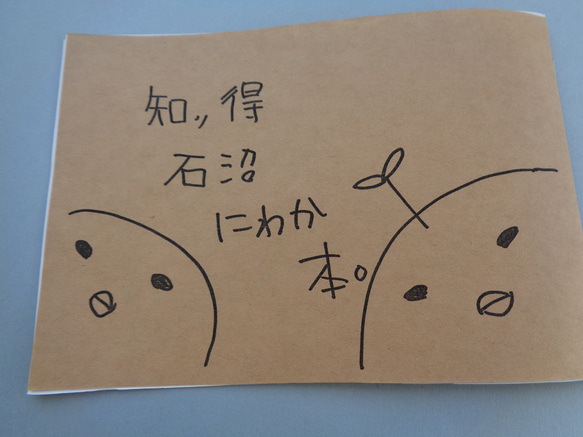 知〃得
石沼
にわか
本。